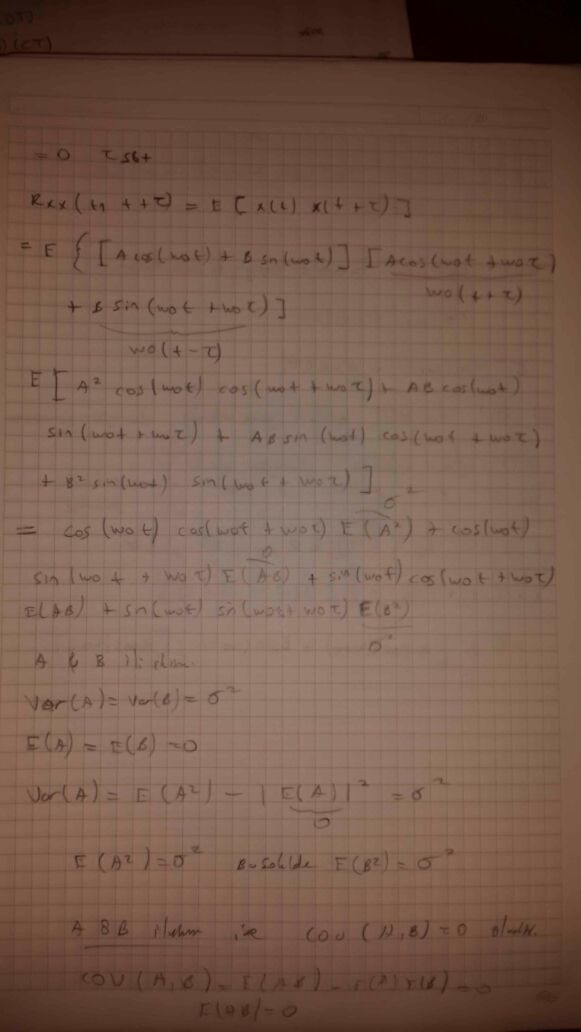 (DT)
) (CT)
= 0
Rxx(t, t+τ) = E [x(t) x(t+τ)]
= E { [A cos(w0t) + B sin(w0t)] [A cos(w0t + w0τ)
w0(t+τ)
+ B sin(w0t + w0τ)]
w0(t-τ)
E [ A² cos(w0t) cos(w0t + w0τ) + AB cos(w0t)
sin(w0t + w0τ) + AB sin(w0t) cos(w0t + w0τ)
+ B² sin(w0t) sin(w0t + w0τ) ]
σ²
= cos(w0t) cos(w0t + w0τ) E(A²) + cos(w0t)
0
sin(w0t + w0τ) E(AB) + sin(w0t) cos(w0t + w0τ)
E(AB) + sin(w0t) sin(w0t + w0τ) E(B²)
σ²
A & B
Var(A) = Var(B) = σ²
E(A) = E(B) = 0
Var(A) = E(A²) - |E(A)|² = σ²
0
E(A²) = σ² E(B²) = σ²
A & B ise COV(A,B) = 0
COV(A,B) = E(AB) - E(A)E(B) = 0
E(AB) = 0